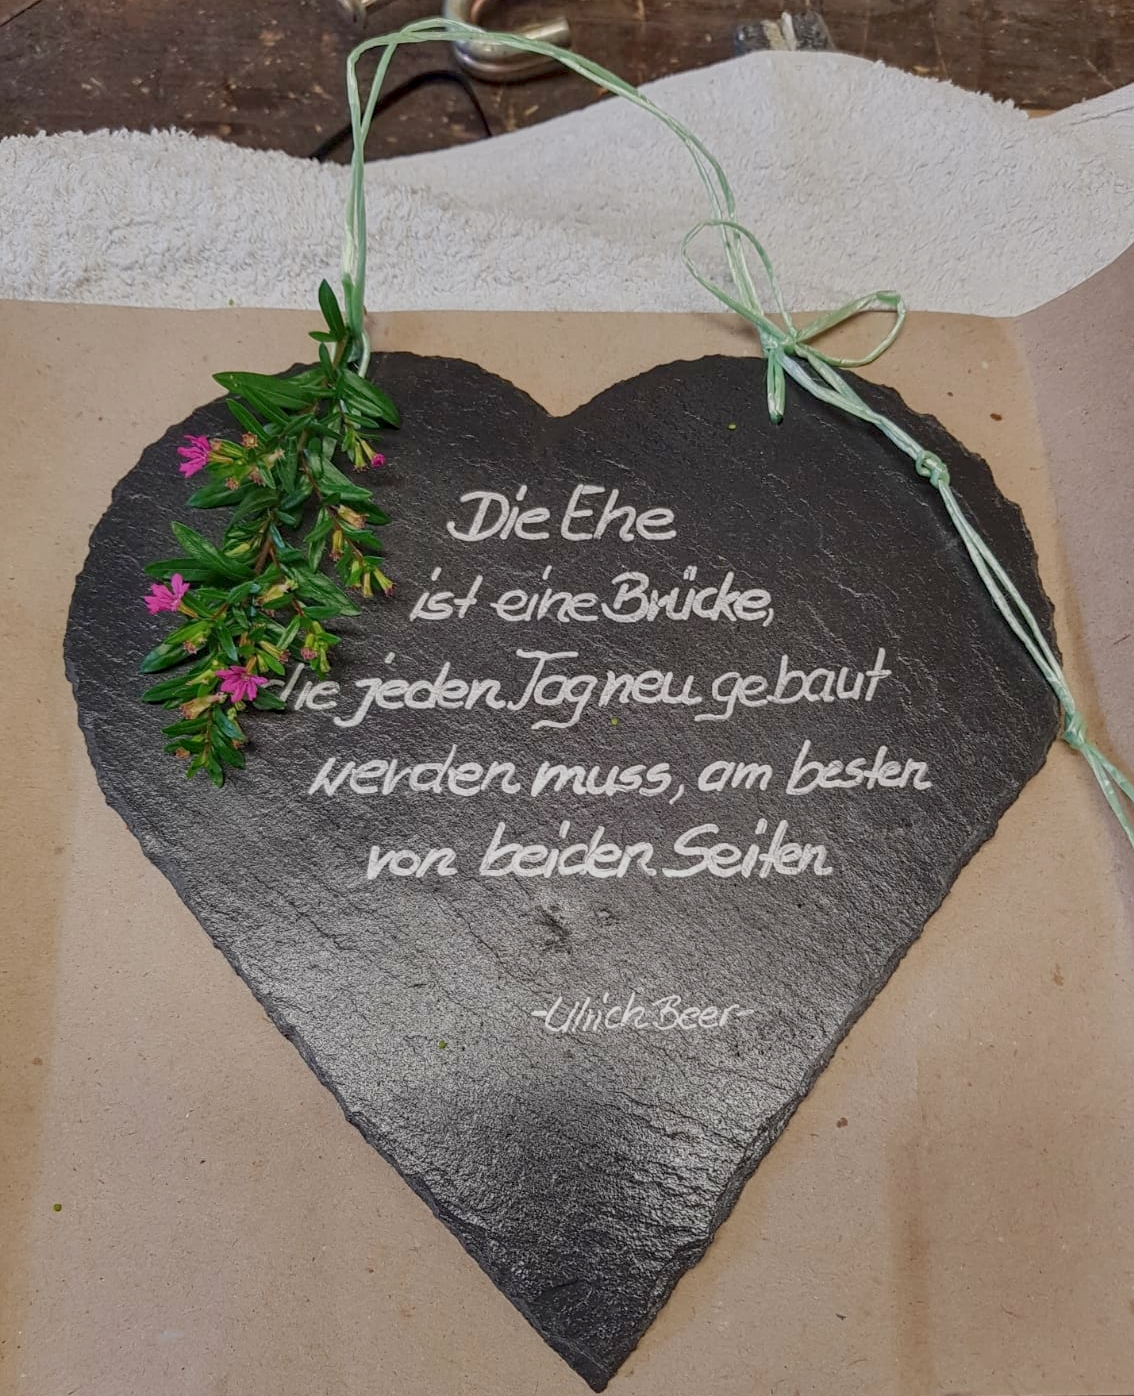 Die Ehe
ist eine Brücke,
die jeden Tag neu gebaut
werden muss, am besten
von beiden Seiten
-Ulrich Beer-